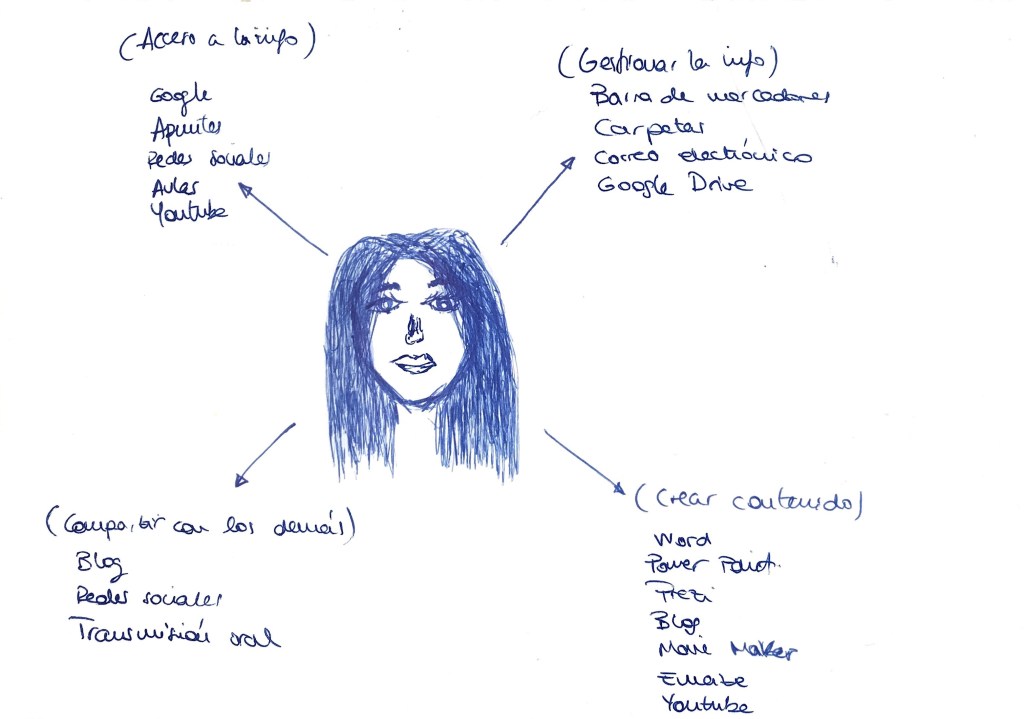 (Acceso a la info)
Google
Apuntes
Redes sociales
Aulas
Youtube
(Gestionar la info)
Barra de marcadores
Carpetas
Correo electrónico
Google Drive
(Compartir con los demás)
Blog
Redes sociales
Transmisión oral
(Crear contenido)
Word
Power Point.
Prezi
Blog
Movie Maker
Emaze
Youtube